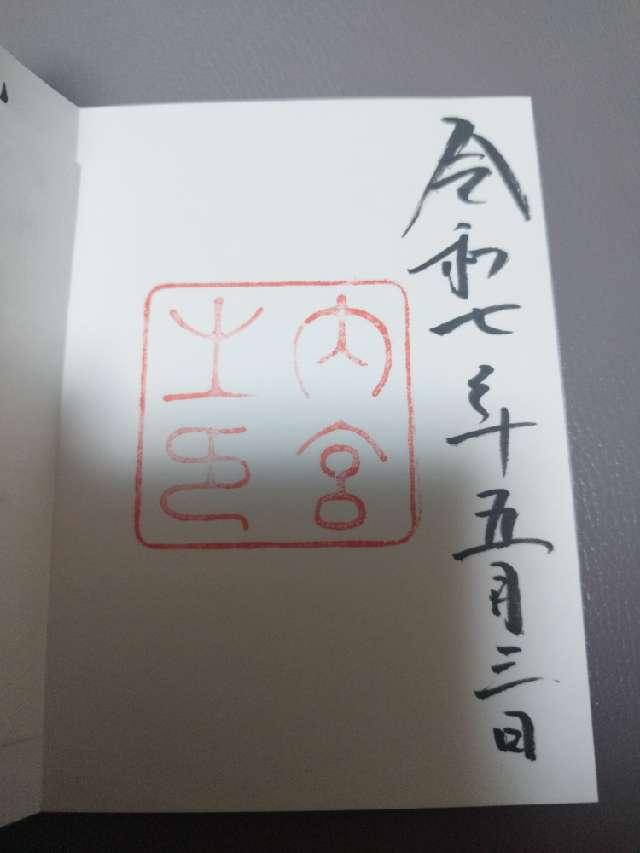 令和七年五月三日
内宮
之印